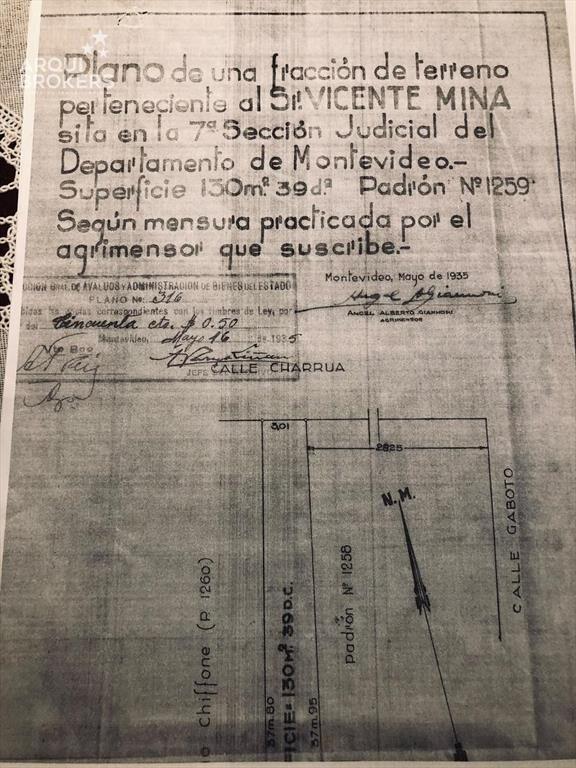 ARQUI
BROKERS
Plano de una fracción de terreno
perteneciente al Sr. VICENTE MINA
sita en la 7ª Sección Judicial del
Departamento de Montevideo.-
Superficie 130m² 39d² Padrón Nº 1259
Según mensura practicada por el
agrimensor que suscribe.-
GRAL. DE AVALUOS Y ADMINISTRACION DE BIENES DEL ESTADO
PLANO No. 316
correspondientes con los timbres de Ley, por
Cincuenta cts. $ 0.50
Montevideo, Mayo 16 de 1935
Vto Bno
JEFE
Montevideo, Mayo de 1935
ANGEL ALBERTO GIANNONI
AGRIMENSOR
CALLE CHARRUA
3,01
2825
N.M.
CALLE GABOTO
Padrón Nº 1258
o Chiffone (P. 1260)
37m.80
ICIE=130m² 39D.C.
37m.95